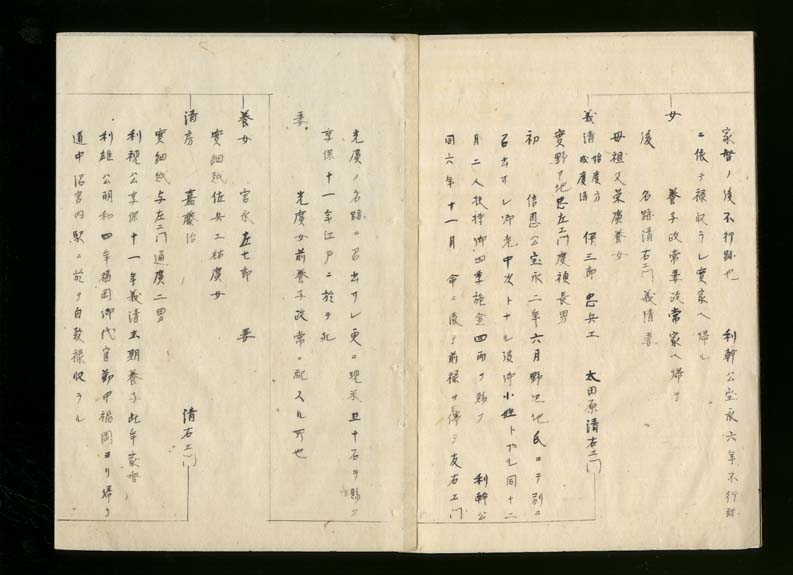 家督ノ後不行跡也 利幹公宝永六年不行跡
ニ依テ禄収ラレ実家ヘ帰ル
女 養子政常妻政常家ヘ帰テ
後 名跡清右エ門義清妻
母祖父栄廣養女
義清 始廣方 或廣清 伊三郎 忠兵エ 太田原清右エ門
實野々地忠左エ門廣禎長男
初 信恩公宝永二年六月野々地氏ニテ別ニ
召出サレ御老中次トナル後御小姓トナル同十二
月二人扶持御四季施金四両ヲ賜フ 利幹公
同六年十一月 命ニ依テ前禄ヲ傳テ友右エ門
光廣ノ名跡ニ召出サレ更ニ現米五十石ヲ賜フ
享保十一年江戸ニ於テ死
妻 光廣女前養子政常ニ配スル所也
養女 宮永左七郎 妻
實細越佐兵エ祐廣女
清房 嘉藤治 清右エ門
實細越与左エ門通廣二男
利視公享保十一年義清末期養子此年家督
利雄公明和四年福岡御代官勤中福岡ヨリ帰ノ
道中沼宮内駅ニ於テ自殺禄収ラル